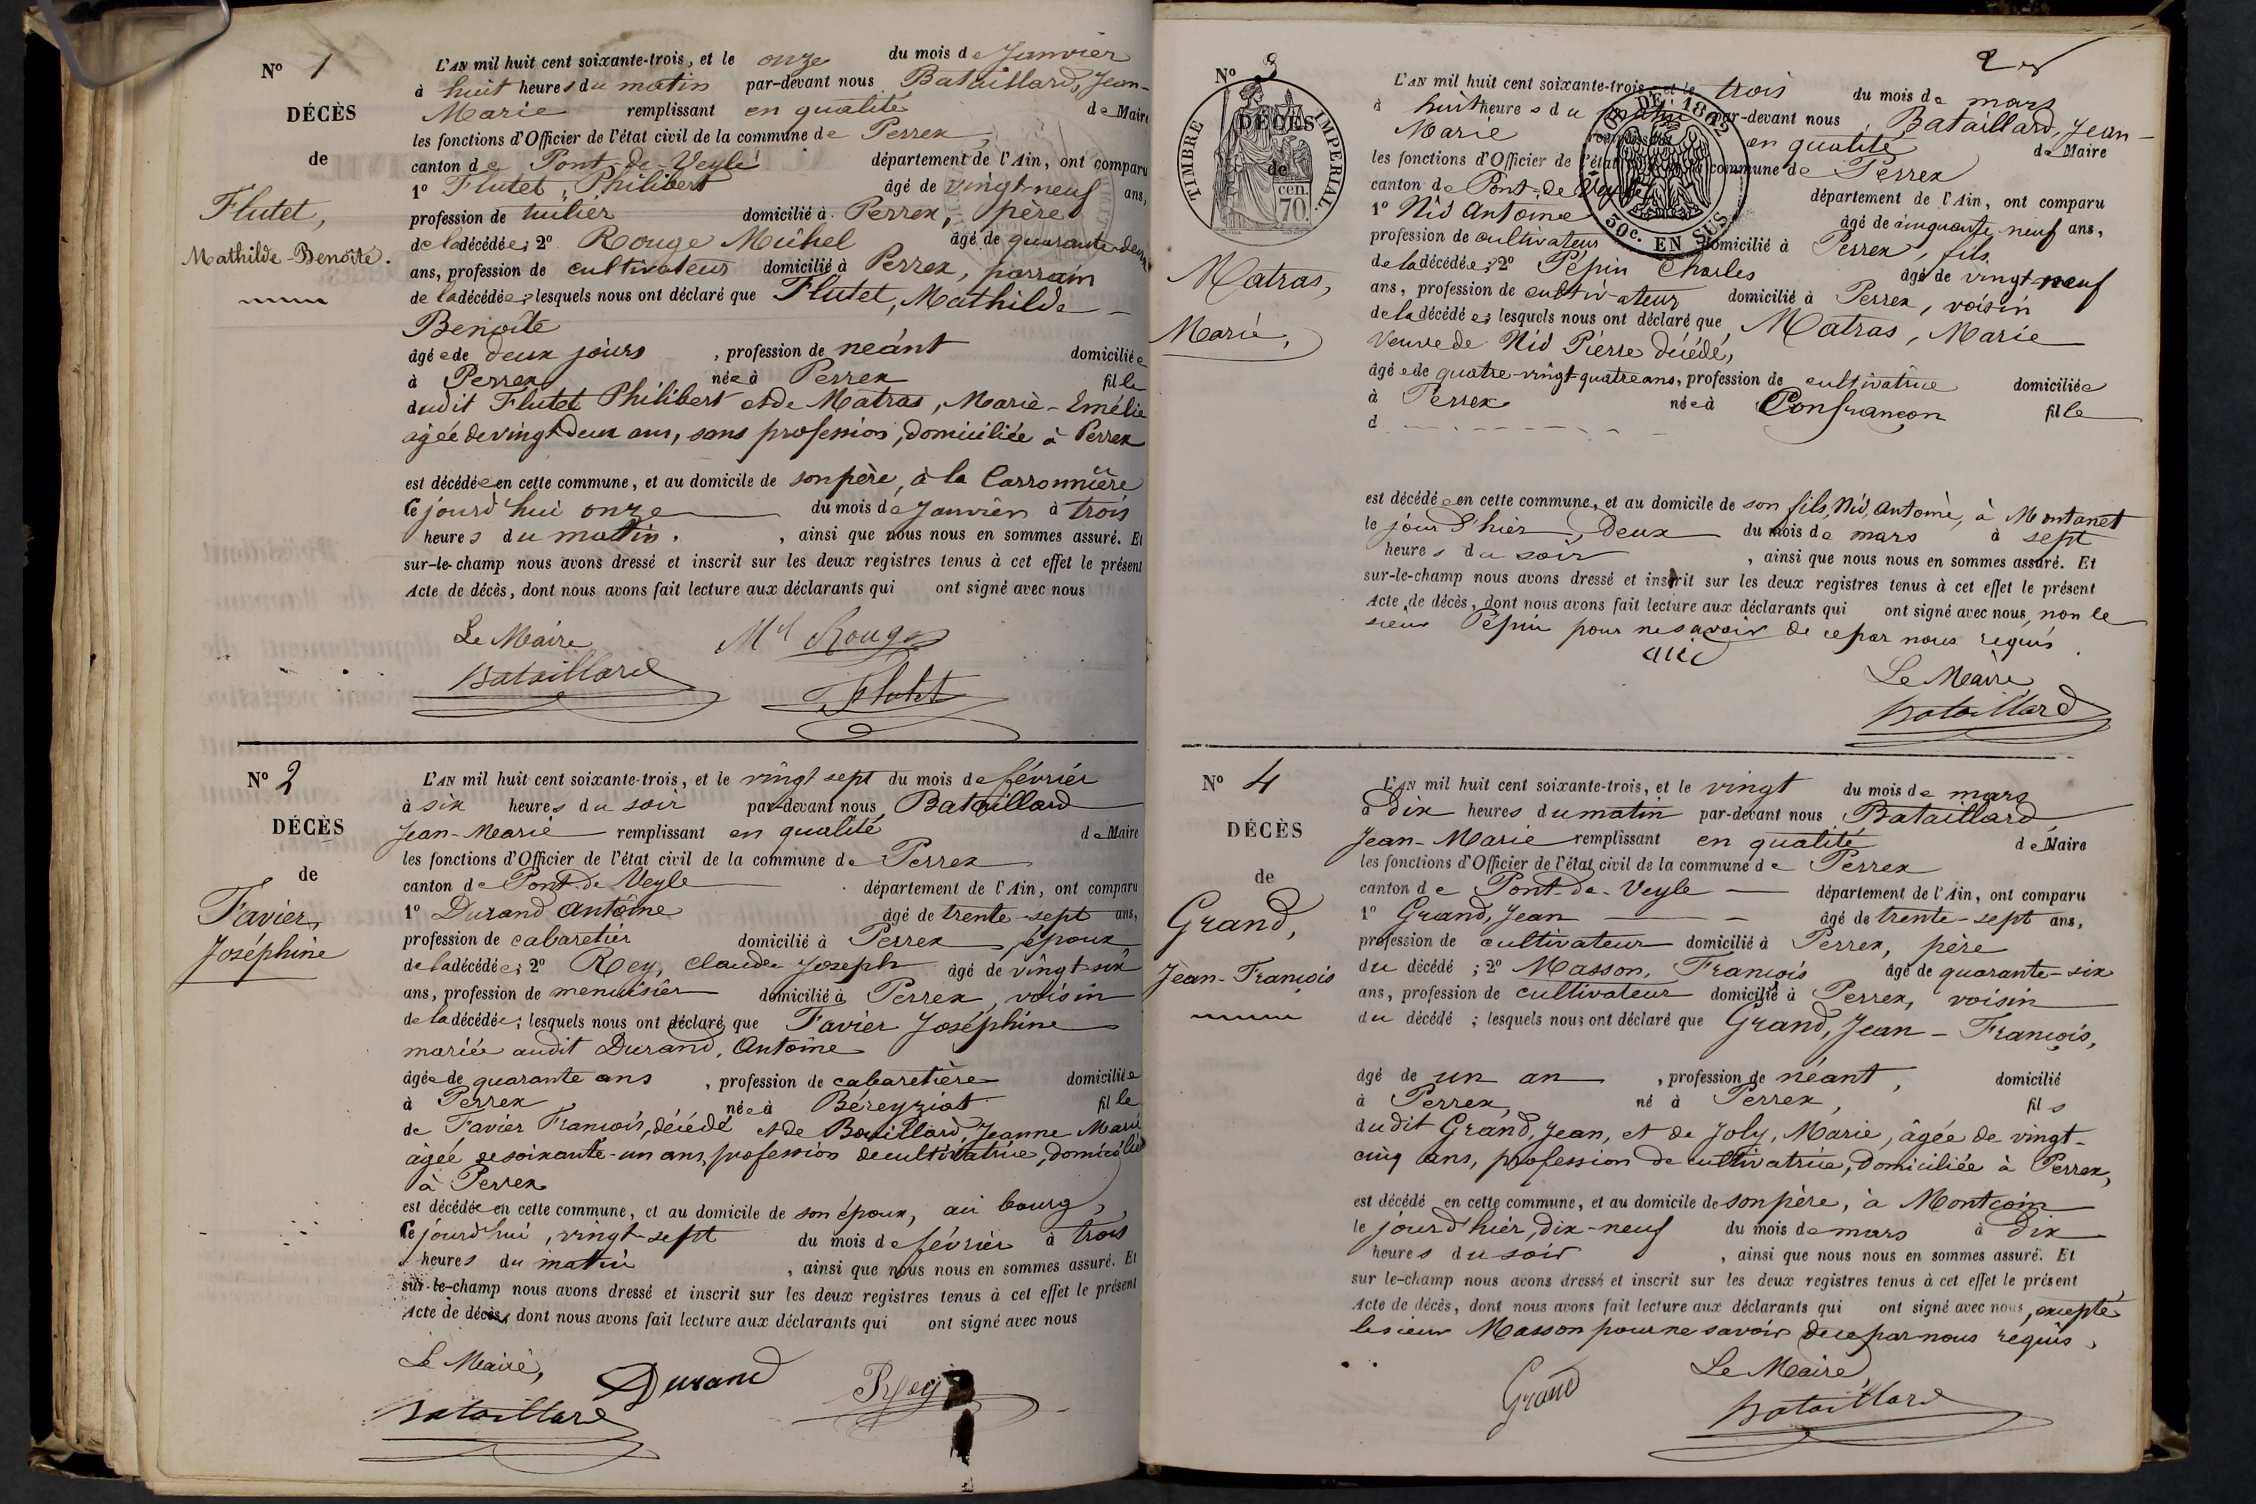 Nº 1
DÉCÈS
de
Flutet,
Mathilde-Benoîte.
L'AN mil huit cent soixante-trois, et le onze du mois de Janvier
à huit heures du matin par-devant nous Bataillard, Jean-
Marie remplissant en qualité de Maire
les fonctions d'Officier de l'état civil de la commune de Perrex
canton de Pont-de-Veyle département de l'Ain, ont comparu
1º Flutet, Philibert âgé de vingt-neuf ans,
profession de tuilier domicilié à Perrex, père
de la décédée; 2º Rouge Michel âgé de quarante-deux
ans, profession de cultivateur domicilié à Perrex, parrain
de la décédée; lesquels nous ont déclaré que Flutet, Mathilde-
Benoîte
âgée de deux jours, profession de néant domiciliée
à Perrex née à Perrex fille
dudit Flutet Philibert et de Matras, Marie-Emélie
agée de vingt deux ans, sans profession, domiciliée à Perrex
est décédée en cette commune, et au domicile de son père, à la Carronnière
Ce jourd'hui onze du mois de Janvier à trois
heures du matin, ainsi que nous nous en sommes assuré. Et
sur-le-champ nous avons dressé et inscrit sur les deux registres tenus à cet effet le présent
Acte de décès, dont nous avons fait lecture aux déclarants qui ont signé avec nous
Le Maire Mel Rouge
Bataillard Flutet
Nº 2
DÉCÈS
de
Favier,
Joséphine
L'AN mil huit cent soixante-trois, et le vingt sept du mois de février
à six heures du soir par-devant nous Bataillard
Jean-Marie remplissant en qualité de Maire
les fonctions d'Officier de l'état civil de la commune de Perrex
canton de Pont-de Veyle département de l'Ain, ont comparu
1º Durand Antoine âgé de trente-sept ans,
profession de cabaretier domicilié à Perrex, époux
de la décédée; 2º Rey, Claude Joseph âgé de vingt-six
ans, profession de menuisier domicilié à Perrex, voisin
de la décédée; lesquels nous ont déclaré que Favier Joséphine
mariée audit Durand, Antoine
âgée de quarante ans, profession de cabaretière domiciliée
à Perrex née à Béreyziat fille
de Favier François, décédé et de Bouillard, Jeanne Marie
âgée de soixante-un ans, profession de cultivatrice, domiciliée
à Perrex
est décédée en cette commune, et au domicile de son époux, au bourg,
Ce jourd'hui, vingt-sept du mois de février à trois
heures du matin, ainsi que nous nous en sommes assuré. Et
sur-le-champ nous avons dressé et inscrit sur les deux registres tenus à cet effet le présent
Acte de décès, dont nous avons fait lecture aux déclarants qui ont signé avec nous
Le Maire, Durand Rey
Bataillard
2
Nº 3
TIMBRE IMPÉRIAL
DÉCÈS
de
cen.
70.
Matras,
Marie,
L'AN mil huit cent soixante-trois, et le trois du mois de mars
à huit heures du matin par-devant nous Bataillard, Jean-
Marie remplissant en qualité de Maire
les fonctions d'Officier de l'état commune de Perrex
canton de Pont-de Veyle département de l'Ain, ont comparu
DE 1862
50c. EN SUS
1º Nid Antoine âgé de cinquante-neuf ans,
profession de cultivateur domicilié à Perrex, fils
de la décédée; 2º Pépin Charles âgé de vingt-neuf
ans, profession de cultivateur domicilié à Perrex, voisin
de la décédée; lesquels nous ont déclaré que Matras, Marie
Veuve de Nid Pierre décédé,
âgée de quatre-vingt-quatre ans, profession de cultivatrice domiciliée
à Perrex née à Confrançon fille
d
est décédée en cette commune, et au domicile de son fils, Nid, Antoine, à Montanet
le jour d'hier, deux du mois de mars à sept
heures du soir, ainsi que nous nous en sommes assuré. Et
sur-le-champ nous avons dressé et inscrit sur les deux registres tenus à cet effet le présent
Acte de décès, dont nous avons fait lecture aux déclarants qui ont signé avec nous, non le
sieur Pépin pour ne savoir de ce par nous requis.
Le Maire
Bataillard
Nº 4
DÉCÈS
de
Grand,
Jean-François
L'AN mil huit cent soixante-trois, et le vingt du mois de mars
à dix heures du matin par-devant nous Bataillard,
Jean-Marie remplissant en qualité de Maire
les fonctions d'Officier de l'état civil de la commune de Perrex
canton de Pont-de-Veyle département de l'Ain, ont comparu
1º Grand, Jean âgé de trente-sept ans,
profession de cultivateur domicilié à Perrex, père
du décédé; 2º Masson, François âgé de quarante-six
ans, profession de cultivateur domicilié à Perrex, voisin
du décédé; lesquels nous ont déclaré que Grand, Jean-François,
âgé de un an, profession de néant, domicilié
à Perrex, né à Perrex, fils
dudit Grand, Jean, et de Joly, Marie, âgée de vingt-
cinq ans, profession de cultivatrice, domiciliée à Perrex,
est décédé en cette commune, et au domicile de son père, à Montcoin
le jour d'hier, dix-neuf du mois de mars à dix
heures du soir, ainsi que nous nous en sommes assuré. Et
sur le-champ nous avons dressé et inscrit sur les deux registres tenus à cet effet le présent
Acte de décès, dont nous avons fait lecture aux déclarants qui ont signé avec nous, excepté
le sieur Masson pour ne savoir de ce par nous requis.
Grand Le Maire
Bataillard